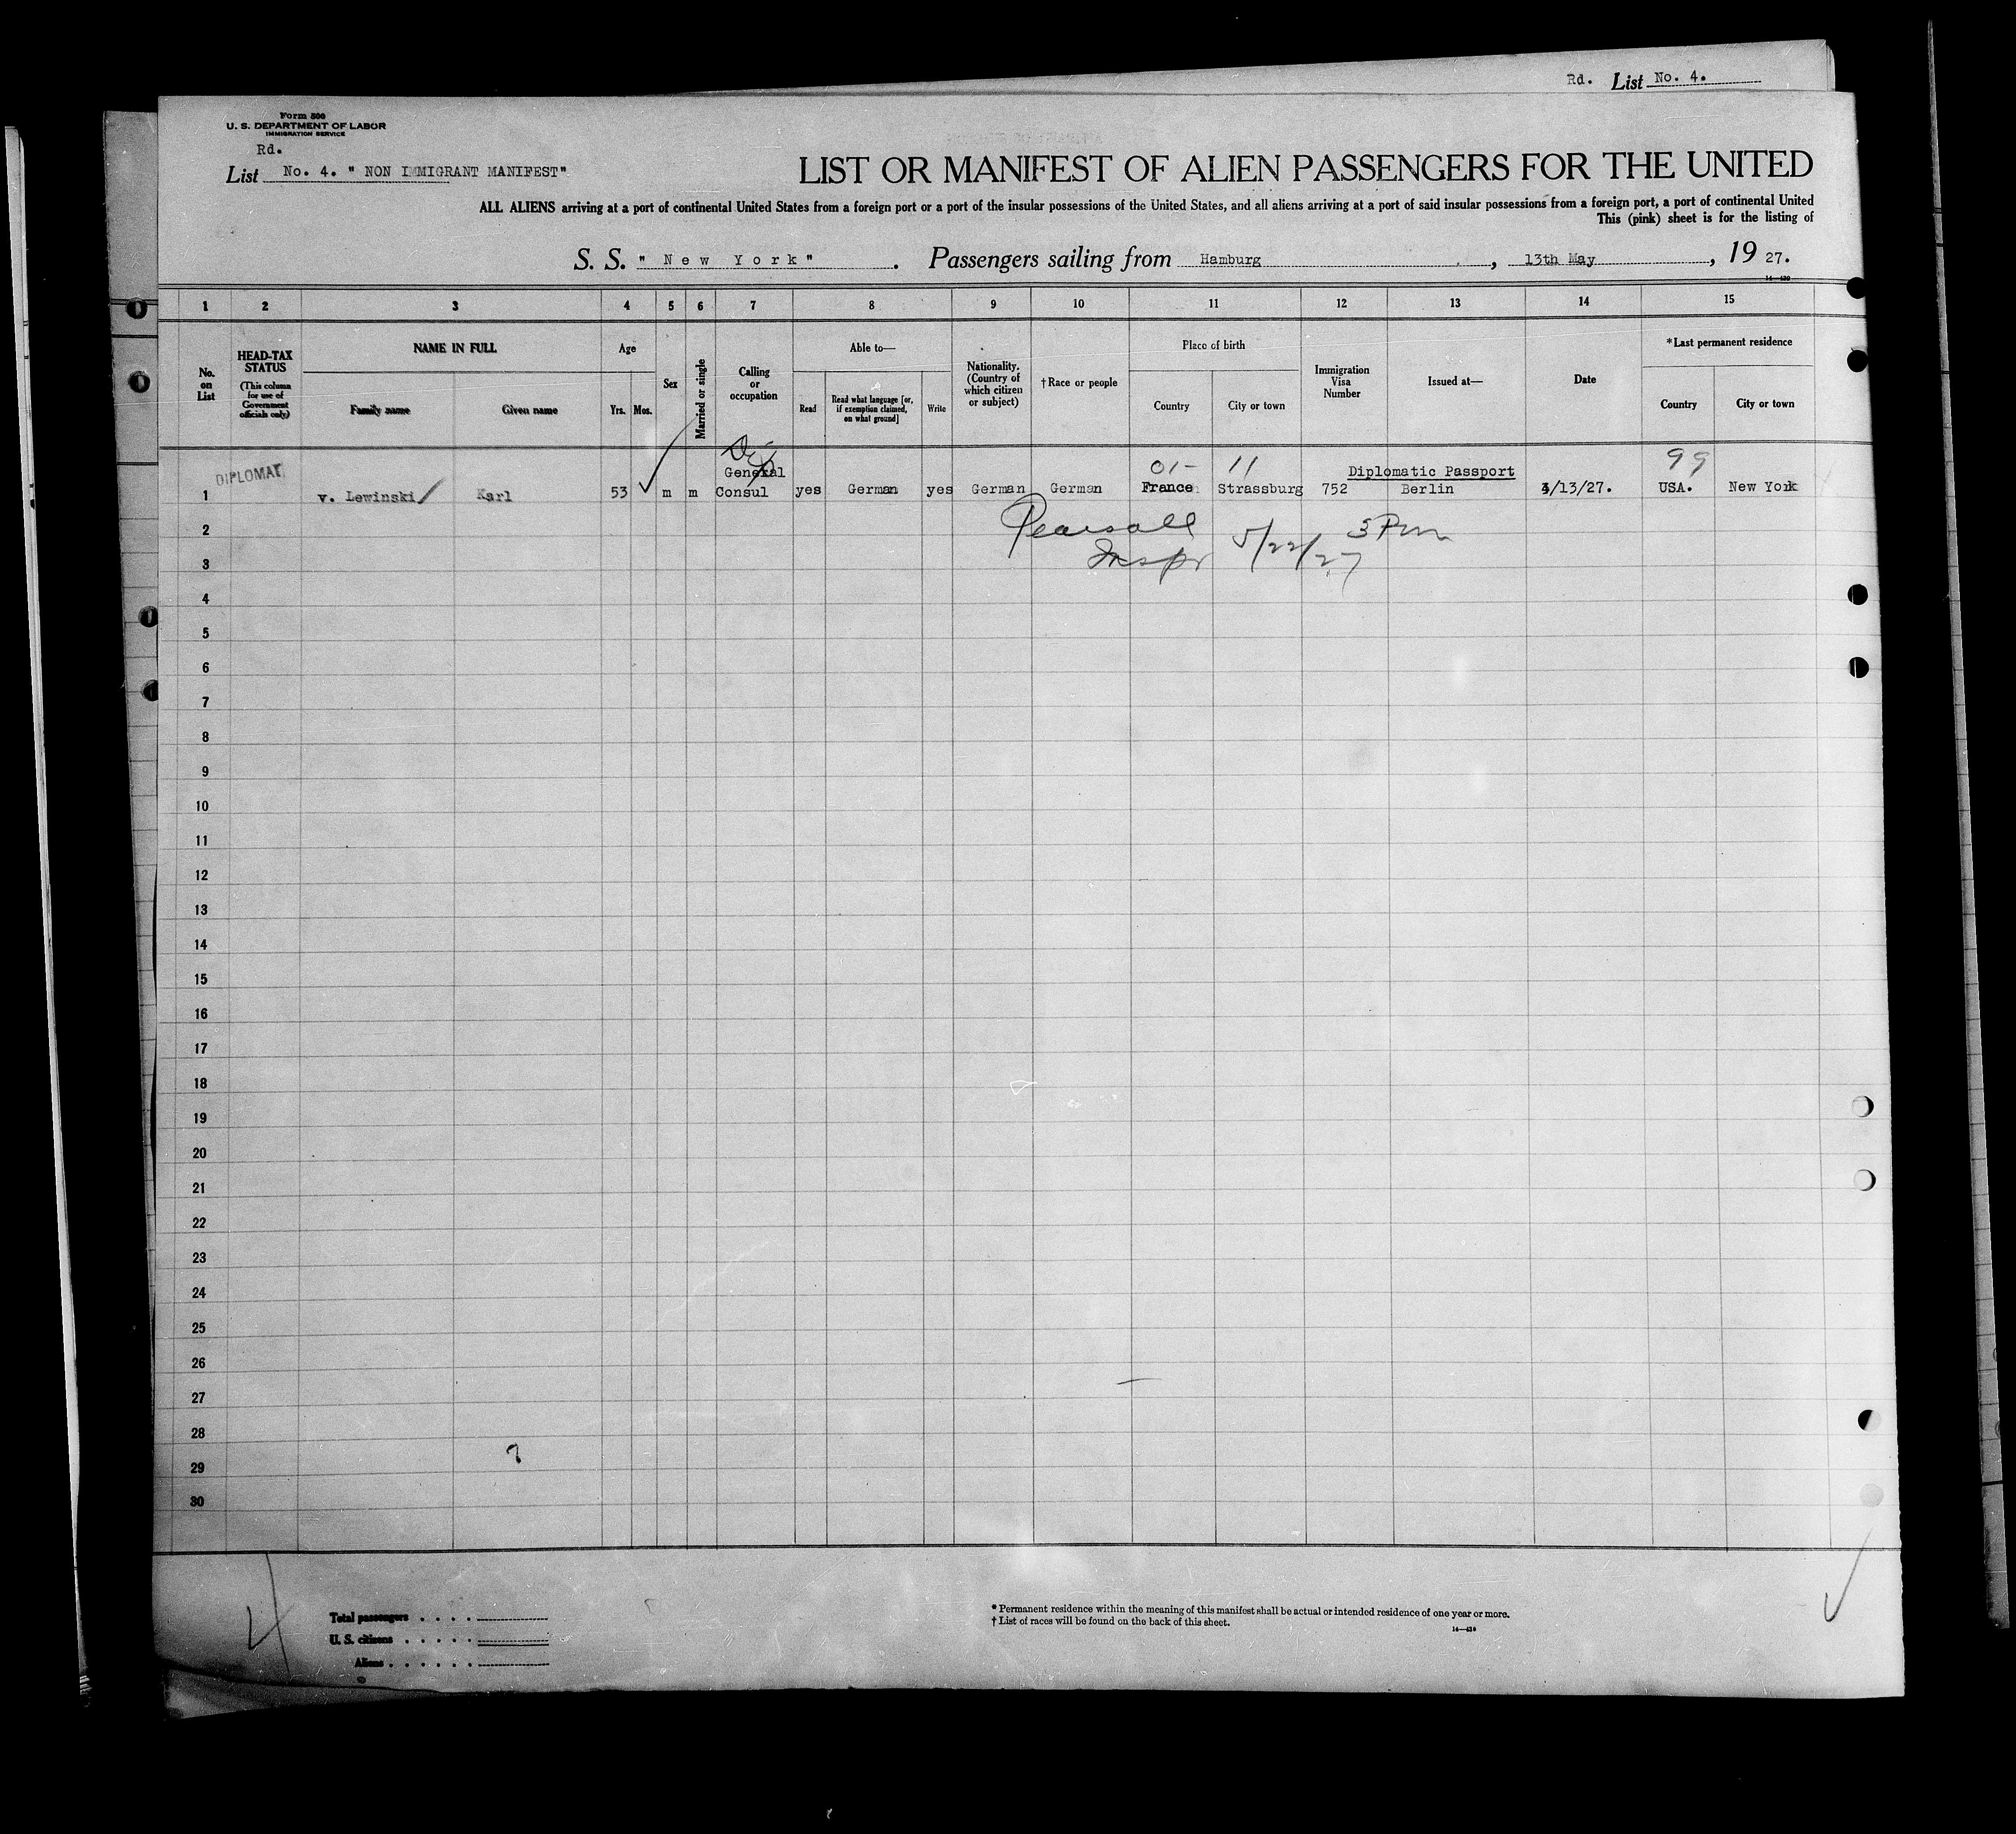 Rd. List No. 4.
Form 500
U. S. DEPARTMENT OF LABOR
IMMIGRATION SERVICE
Rd.
List No. 4. " NON IMMIGRANT MANIFEST"
LIST OR MANIFEST OF ALIEN PASSENGERS FOR THE UNITED
ALL ALIENS arriving at a port of continental United States from a foreign port or a port of the insular possessions of the United States, and all aliens arriving at a port of said insular possessions from a foreign port, a port of continental United
This (pink) sheet is for the listing of
S. S. " New York " . Passengers sailing from Hamburg , 13th May , 19 27.
1 2 3 4 5 6 7 8 9 10 11 12 13 14 15
No. on List
HEAD-TAX STATUS (This column for use of Government officials only)
NAME IN FULL
Family name Given name
Age
Yrs. Mos.
Sex
Married or single
Calling or occupation
Able to—
Read
Read what language [or, if exemption claimed, on what ground]
Write
Nationality. (Country of which citizen or subject)
†Race or people
Place of birth
Country City or town
Immigration Visa Number
Issued at—
Date
*Last permanent residence
Country City or town
Dip
01- 11 99
DIPLOMAT General Diplomatic Passport
1 v. Lewinski Karl 53 m m Consul yes German yes German German France Strassburg 752 Berlin /13/27. USA. New York
2 Pearsall 3 Pm
3 Inspr 5/22/27
4
5
6
7
8
9
10
11
12
13
14
15
16
17
18
19
20
21
22
23
24
25
26
27
28
29
30
4
Total passengers
U. S. citizens
Aliens
* Permanent residence within the meaning of this manifest shall be actual or intended residence of one year or more.
† List of races will be found on the back of this sheet.